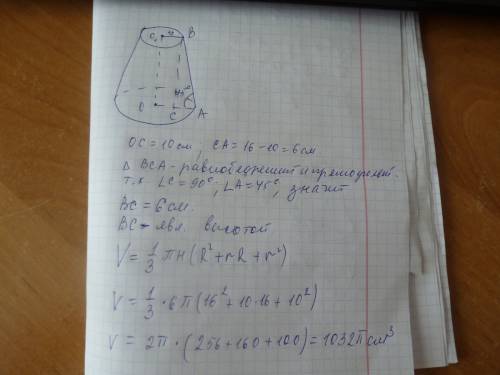 O₁ B
45°
O C A
OC = 10 см, CA = 16 - 10 = 6 см
Δ BCA - равнобедренный и прямоугольный.
т.к ∠C = 90°, ∠A = 45°, значит
BC = 6 см.
BC - явл. высотой
V = 1/3 πH (R² + rR + r²)
V = 1/3 · 6π (16² + 10·16 + 10²)
V = 2π · (256 + 160 + 100) = 1032π см³